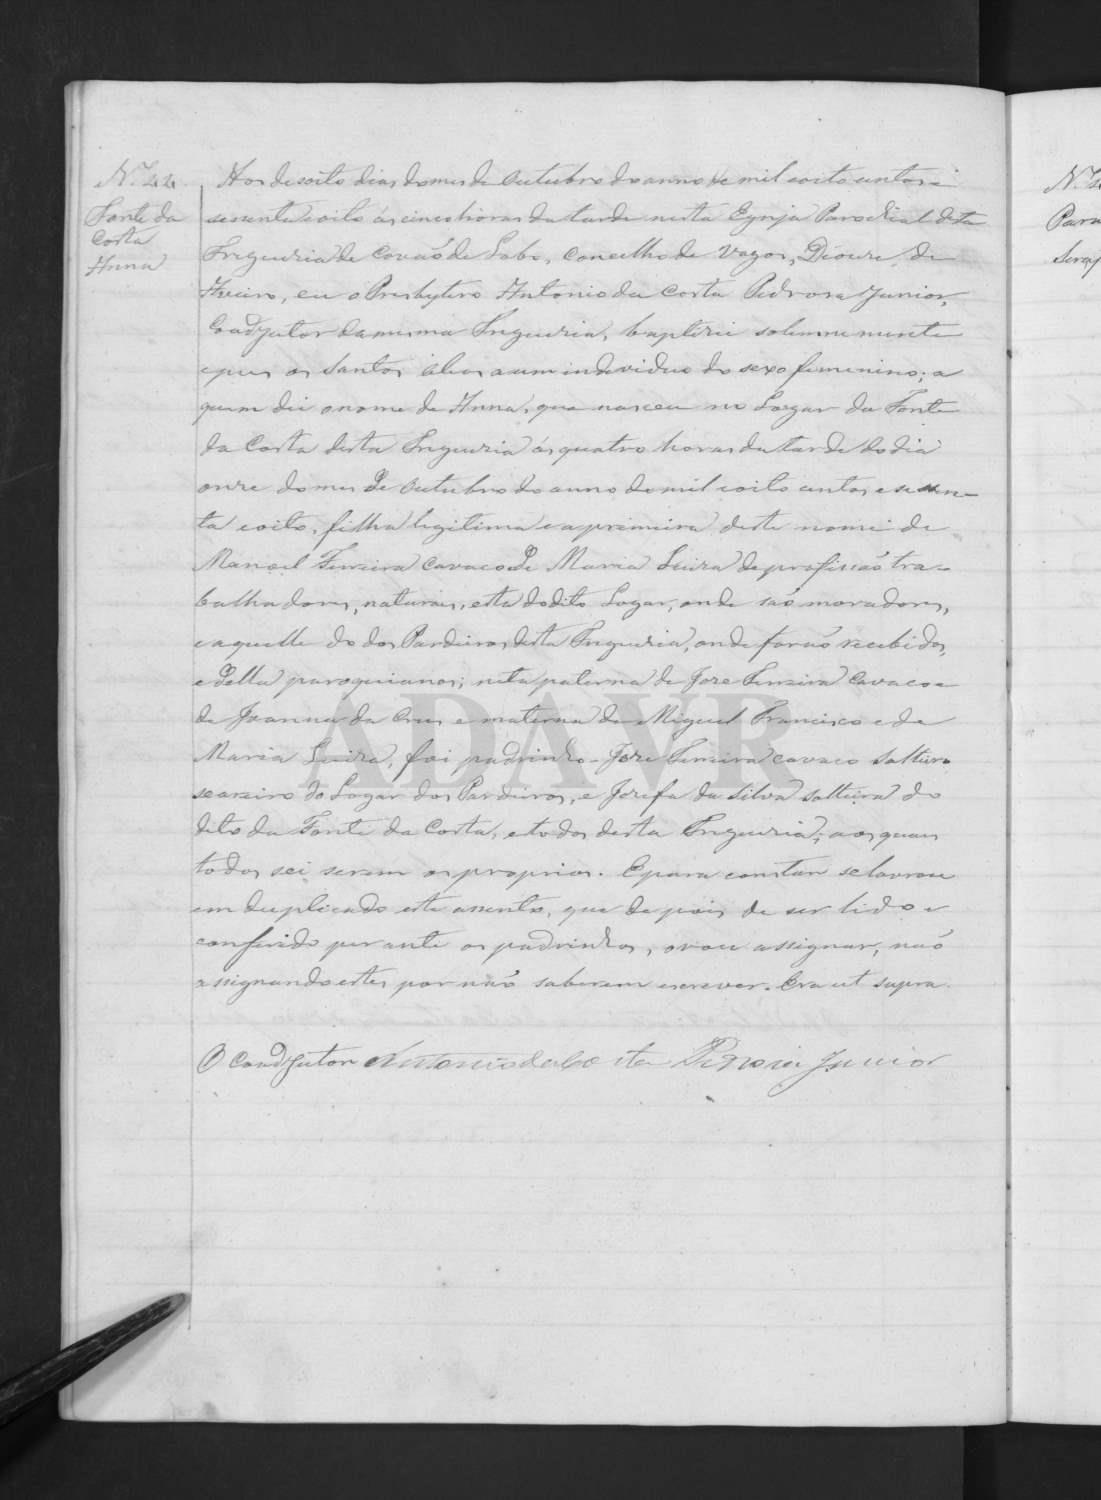 Nº 44
Fonte da
Costa
Anna
Aos desoito dias do mes de Outubro do anno de mil oito centos e
sessenta e oito ás cinco horas da tarde nesta Egreja Parochial desta
Freguezia de Covaõ de Lobo, Concelho de Vagos, Diocese de
Aveiro, eu o Presbytero Antonio da Costa Pedrosa Junior,
Coadjutor da mesma Freguezia, baptizei solemnemente
e pus os Santos oleos a um individuo do sexo femenino; a
quem dei o nome de Anna, que nasceu no Logar da Fonte
da Costa desta Freguezia ás quatro horas da tarde do dia
onze do mes de Outubro do anno de mil oito centos e sessen-
ta e oito, filha legitima e a primeira deste nome de
Manoel Ferreira Cavaco e de Maria Luiza de profissaõ tra-
balhadores, naturaes, esta do dito Logar, onde saõ moradores,
e aquelle do dos Pardeiros desta Freguezia, onde foraõ recebidos,
e della paroquianos; neta paterna de Joze Ferreira Cavaco e
de Joanna da Crus e materna de Miguel Francisco e de
Maria Luiza, foi padrinho Joze Ferreira Cavaco solteiro
seareiro do Logar dos Pardeiros, e Josefa da Silva solteira do
dito da Fonte da Costa, e todos desta Freguezia; aos quaes
todos sei serem os proprios. E para constar se lavrou
em duplicado este assento, que depois de ser lido e
conferido perante os padrinhos, o vou assignar, naõ
assignando estes por naõ saberem escrever. Era ut supra.
O Coadjutor Antonio da Costa Pedrosa Junior
Nº
Para
ADAVR